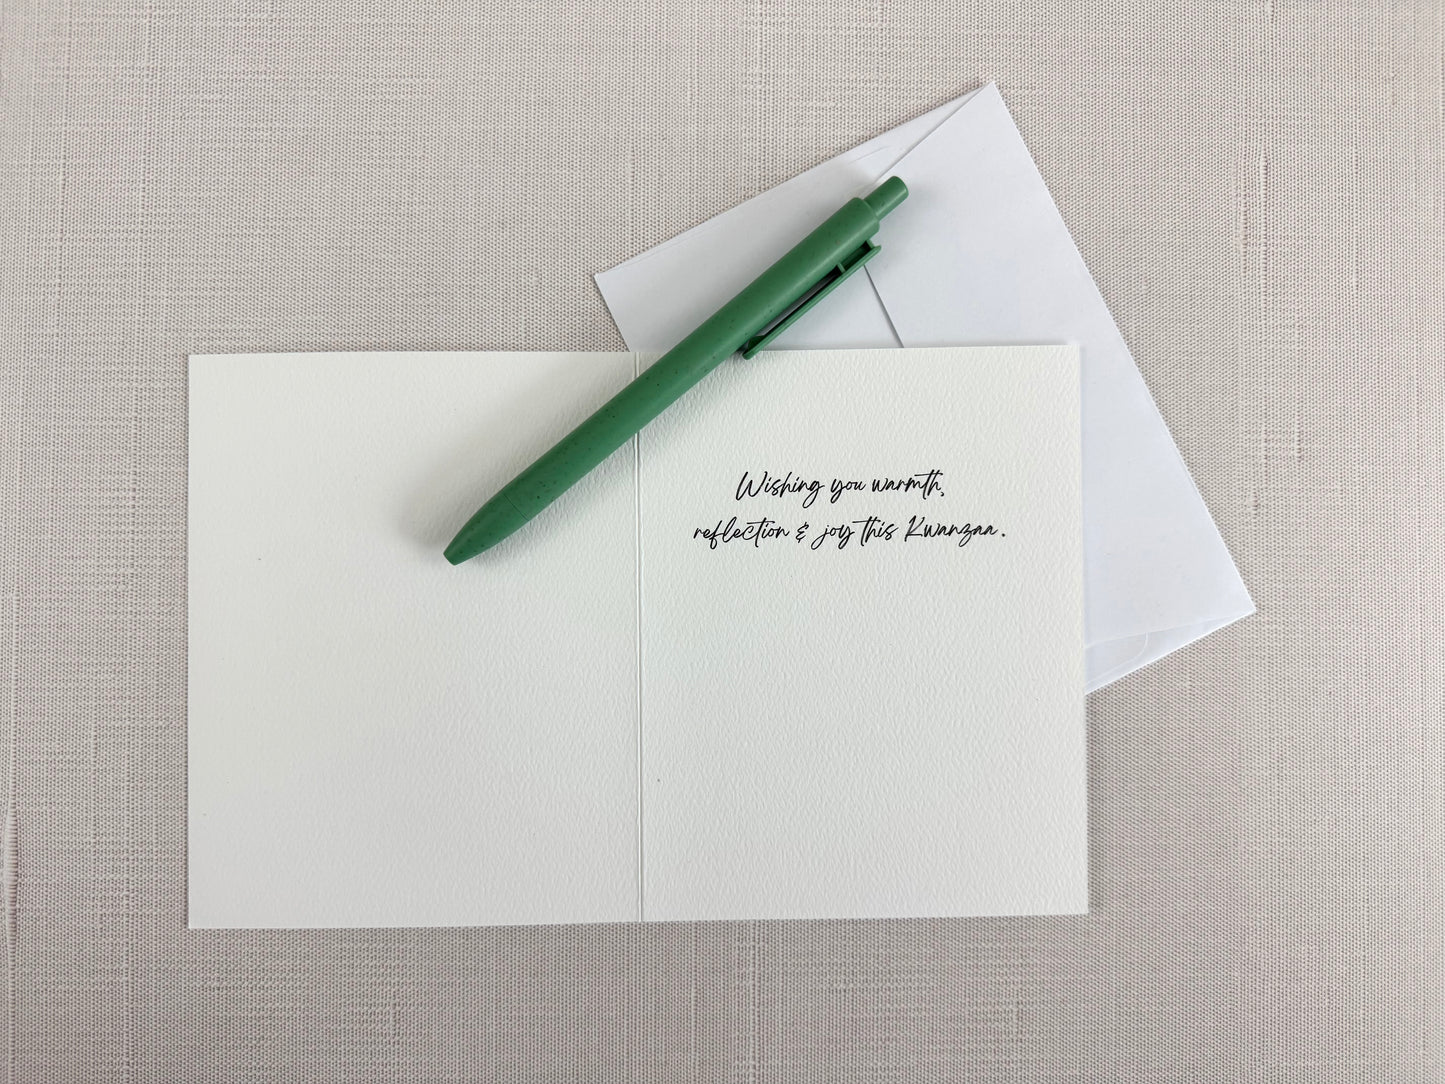 Wishing you warmth,
reflection & joy this Kwanzaa.